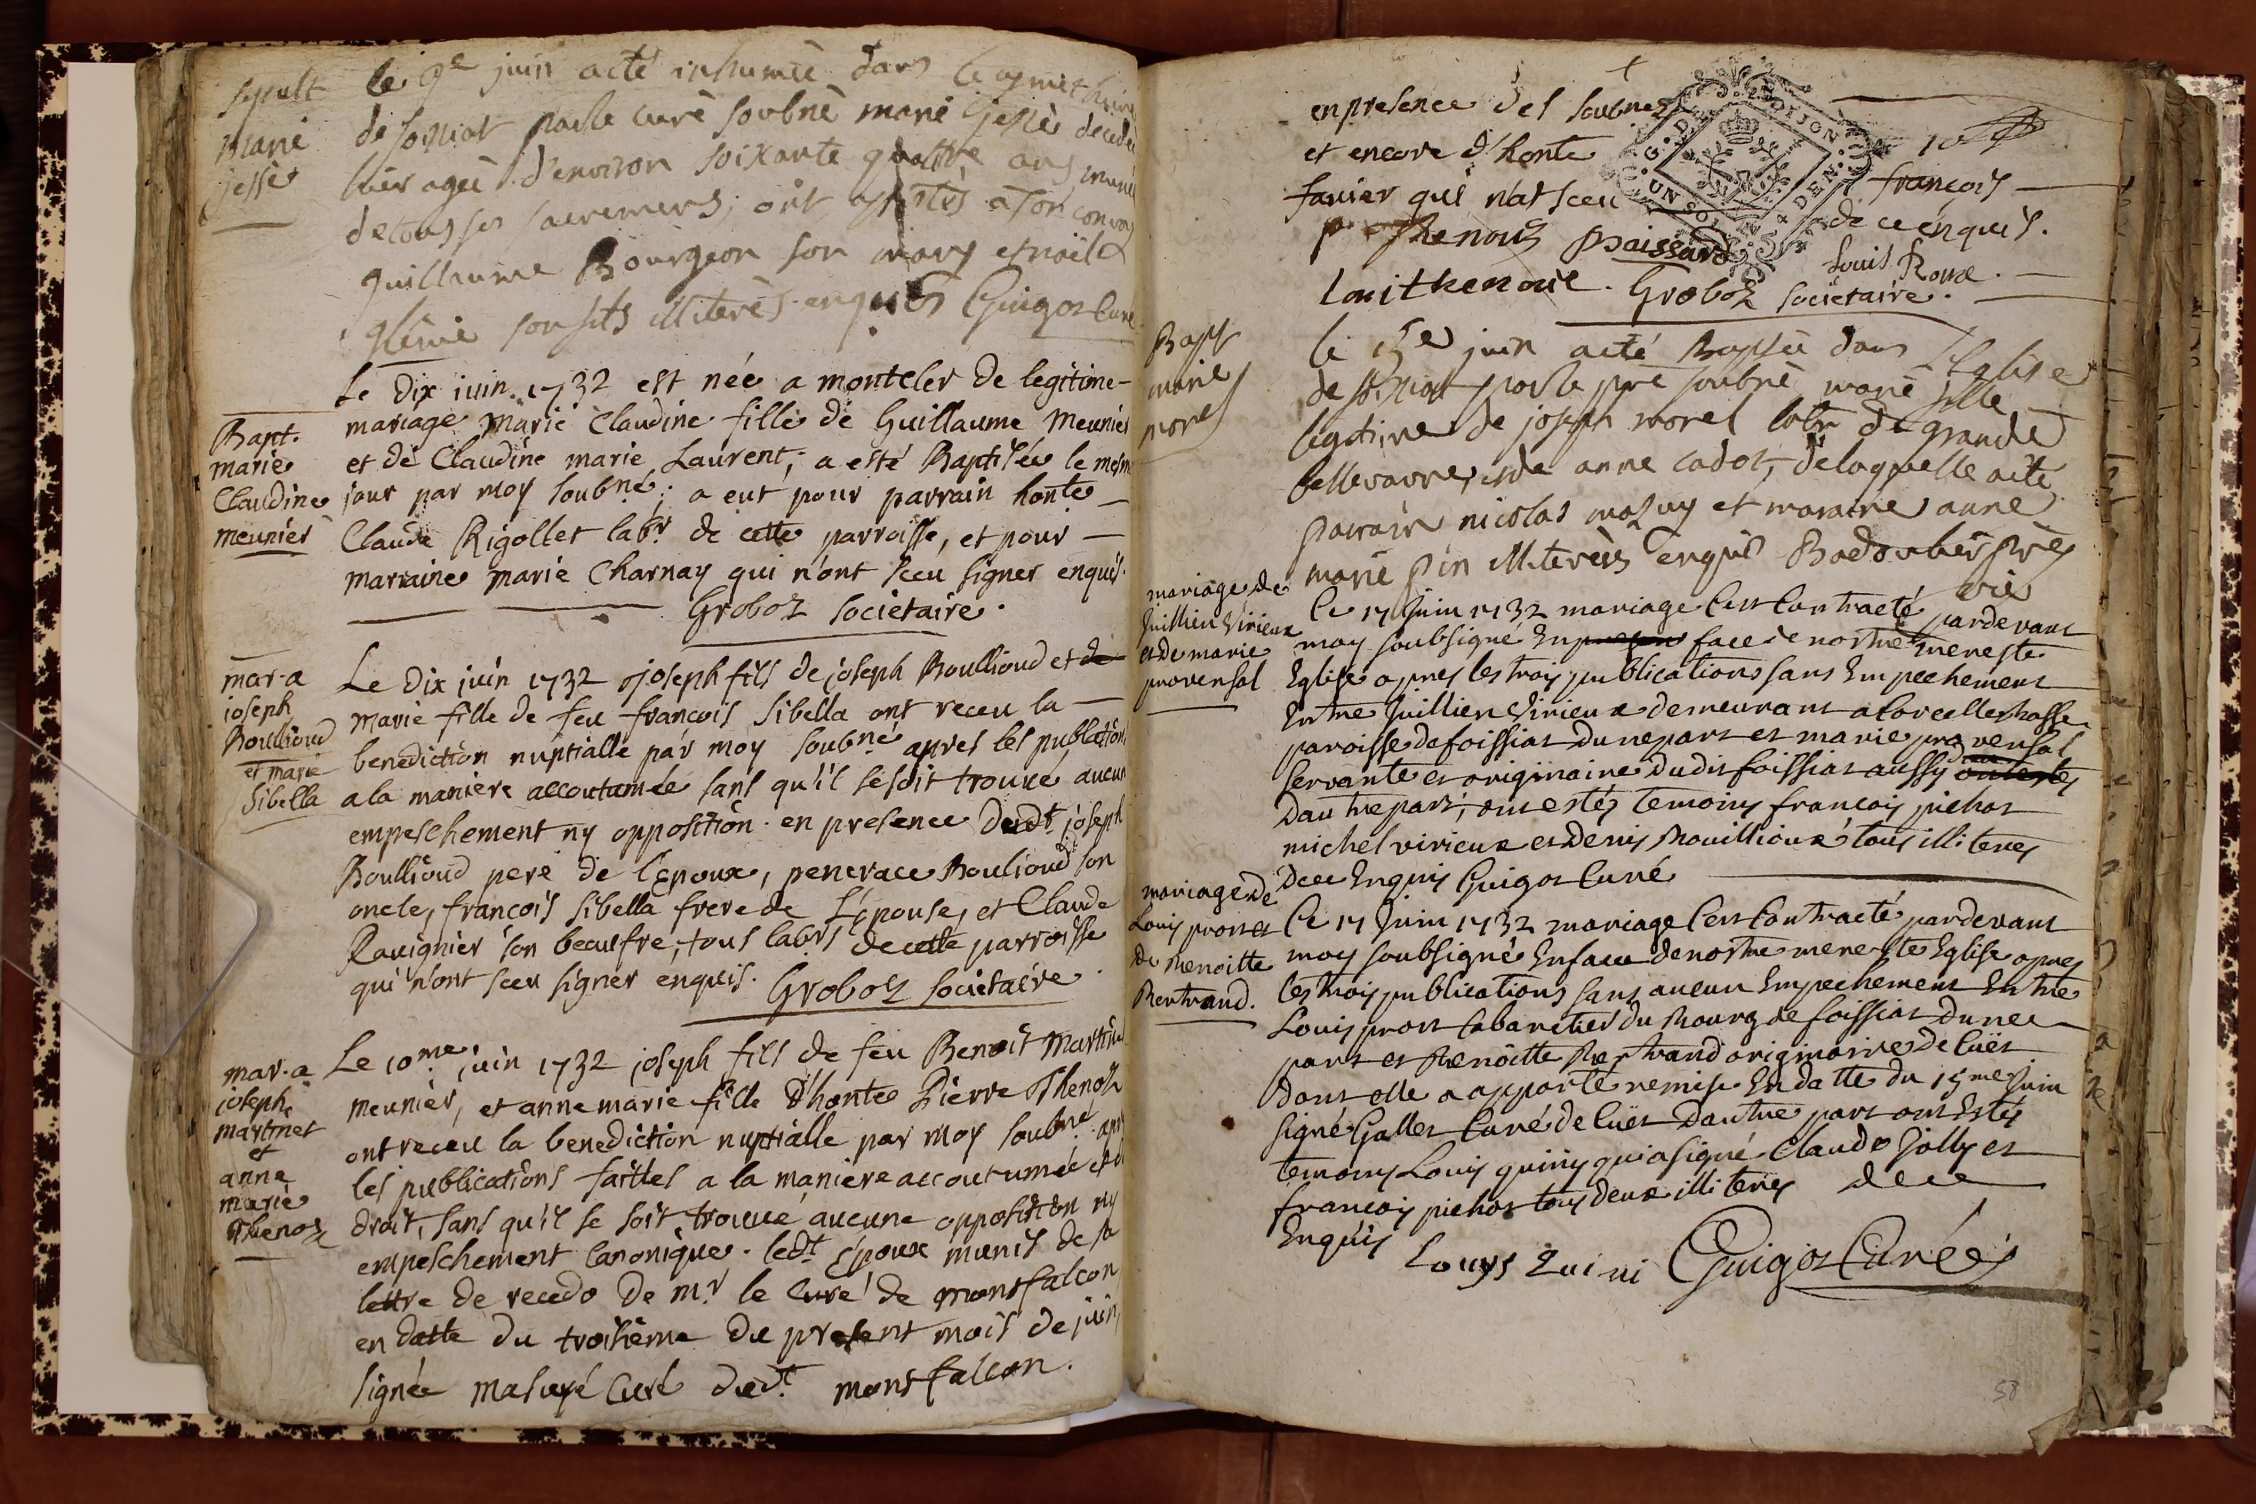 sepult
marie
jesse
le 9e juin acté inhumèe dans le cymethiere
de foissiat par le curè soubnè marie jessè decedèe
hier ageè d'environ soixante quattre ans munie
de tous ses sacremens, ont assistès a son convoy
guillaume Bourgeon son mary et
son fils illiterès enquis Guigot Curé
Bapt.
marie
Claudine
meunier
Le Dix juin 1732 est née a monteler de legitime
mariage Marie Claudine fille de Guillaume Meunier
et de Claudine marie Laurent; a esté Baptisée le mesme
jour par moy soubné; a eut pour parrain honte
Claude Rigollet labr de cette parroisse, et pour
marraine marie Charnay qui n'ont sceu signer enquis.
Groboz societaire.
mar.a
joseph
Boullioud
et marie
Sibella
Le Dix juin 1732 joseph fils de joseph Boullioud et de
marie fille de feu françois Sibella ont receu la
benediction nuptialle par moy soubné apres les publications
a la maniere accoutumée sans qu'il se soit trouvé aucun
empeschement ny opposition. en presence dudt joseph
Boullioud pere de l'epoux, penerace Boulioud son
oncle, françois Sibella frere de L'épouse, et Claude
Ravignier son beaufre, tous labrs de cette parroisse
qui n'ont sceu signer enquis. Groboz societaire.
mar.a
joseph
martinet
et
anne
marie
Thenoz
Le 10me juin 1732 joseph fils de feu Benoit Martinet
meunier, et anne marie fille d'honte Pierre Thenoz
ont receu la benediction nuptialle par moy soubné apres
les publications faittes a la maniere accoutumée et de
droit, sans qu'il se soit trouvé aucune opposition ny
empeschement canonique. ledt Epoux munis de sa
lettre de recedo de mr le curé de montfalcon
en datte du troisième du present mois de juin,
signée masuyé curé dudt montfalcon.
en presence des soubnez
et encore d'honte françois
favier qui n'at sceu de ce enquis.
p Thenouz paissard Louis Roux.
Louithenoue. Groboz societaire.
Bapt
marie
morel
le 15e juin acté Baptsèe dans l'Eglise
de foissiat par le ptre soubnè marie fille
legitime de joseph morel labr de grande
bellevavre, et de anne cadot, de laquelle acté
parrain nicolas mazuy et maraine anne
marie pin illiterèes enquis Badoubeis ptre
vic
mariage de
Juillien Virieux
et de marie
provensal
Ce 17 Juin 1732 mariage c'est Contracté pardevant
moy soubsigné En face de nostre mereste
Eglise apres les trois publications sans Empechement
Entre Juillien Virieux demeurant a lorcellerhasse
paroisse de foissiat Dune part et marie provensal
servante et originaire dudit foissiat aussy
Dautre part, ont estés temoins francois pichot
michel virieux et Denis Rouillioux tous illiteres
Dece Enquis Guigot Curé
mariage de
Louis prost et
de Benoitte
Bertrand.
Ce 17 Juin 1732 mariage c'est Contracté pardevant
moy soubsigné En face de nostre mereste Eglise apres
les trois publications sans aucun Empechement Entre
Louis prost Cabaretier du Bourg de foissiat Dune
part et Benoitte Bertrand originaire de Cuët
Dont elle a apporté remise En datte du 15me Juin
signé Gallet Curé de Cuët Dautre part ont Estés
temoins Louis quiny qui a signé Claude Jolly et
francois pichot tous deux illiteres dece
Enquis
Louys Quini Guigot Curé
58